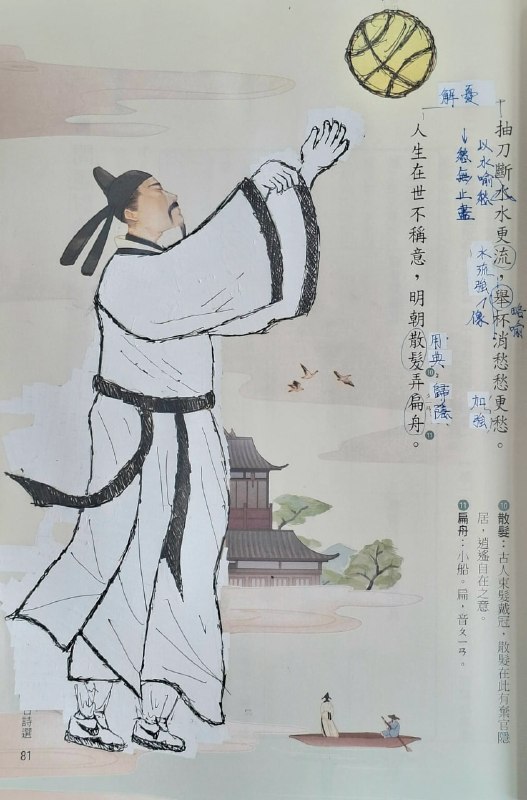 抽刀斷水水更流，舉杯消愁愁更愁。
人生在世不稱意，明朝散髮弄扁舟。
解憂
以水喻愁
↓愁無止盡
水流強
像
暗喻
加強
用典
歸隱
10
11
10 散髮：古人束髮戴冠，散髮在此有棄官隱
居，逍遙自在之意。
11 扁舟：小船。扁，音ㄆㄧㄢ。
古詩選
81